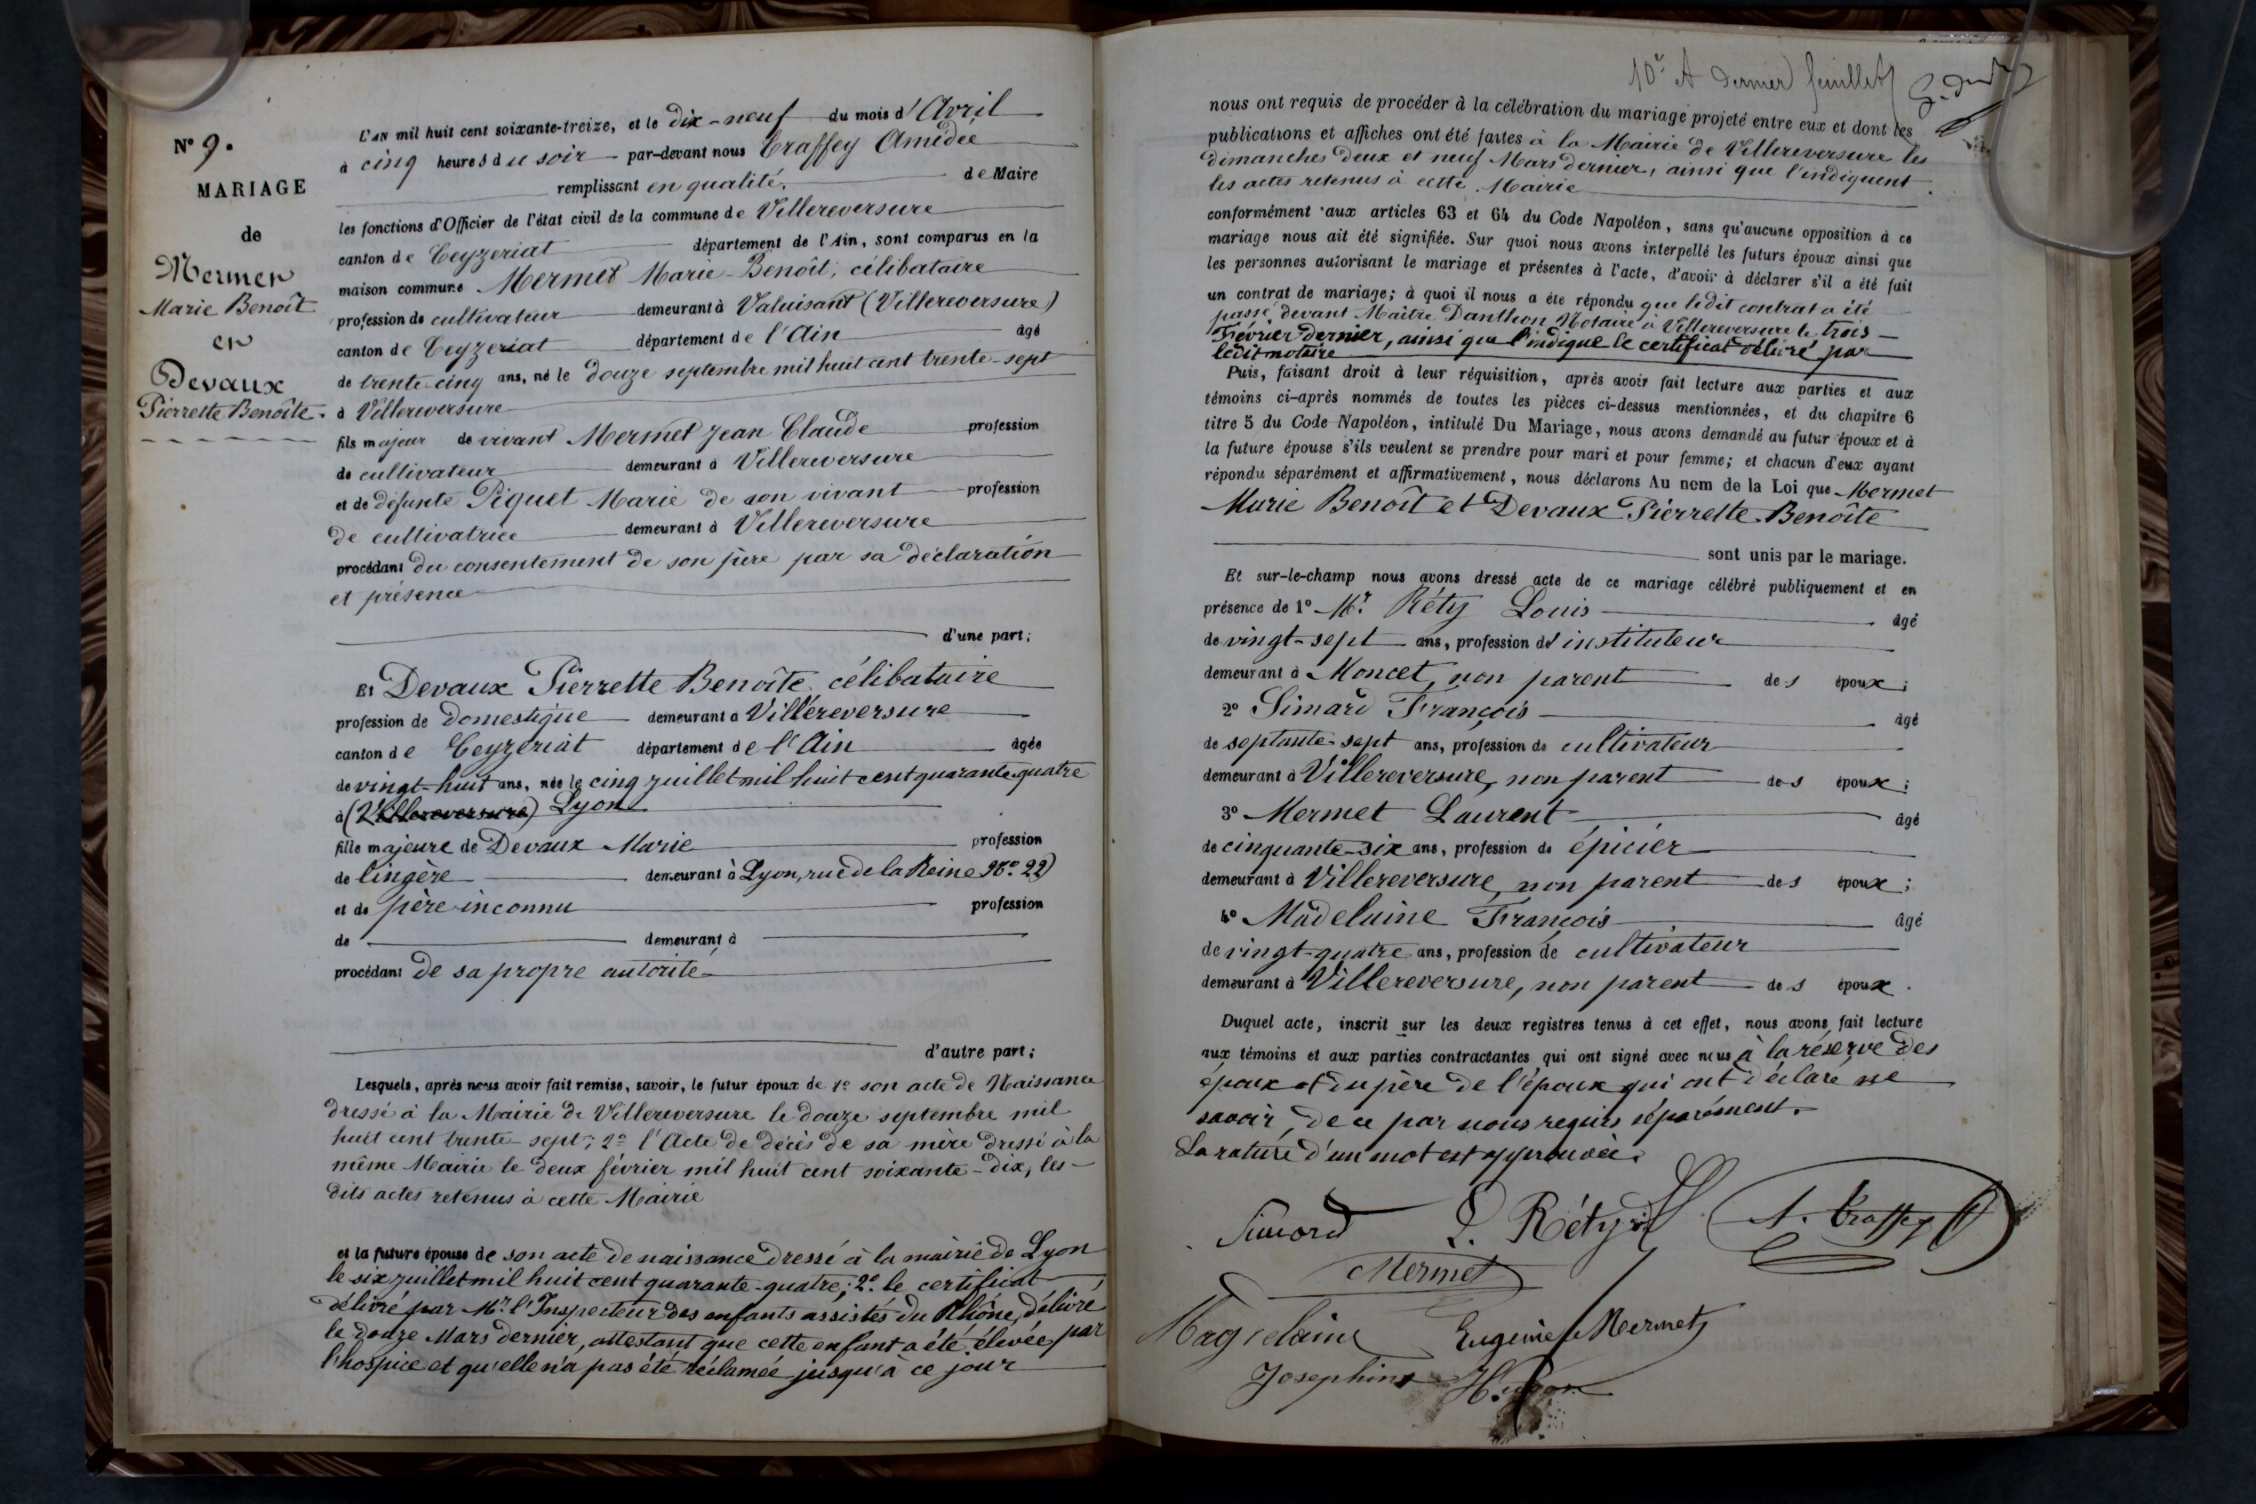 N° 9.
MARIAGE
de
Mermet
Marie Benoît
et
Devaux
Pierrette Benoîte.
L'AN mil huit cent soixante-treize, et le dix-neuf du mois d'Avril
à cinq heures du soir par-devant nous Traffey Amédée
remplissant en qualité de Maire
les fonctions d'Officier de l'état civil de la commune de Villereversure
canton de Ceyzeriat département de l'Ain, sont comparus en la
maison commune Mermet Marie-Benoît, célibataire
profession de cultivateur demeurant à Valuisant (Villereversure)
canton de Ceyzeriat département de l'Ain âgé
de trente-cinq ans, né le douze septembre mil huit cent trente-sept
à Villereversure
fils majeur de vivant Mermet Jean Claude profession
de cultivateur demeurant à Villereversure
et de défunte Piquet Marie de son vivant profession
de cultivatrice demeurant à Villereversure
procédant du consentement de son père par sa déclaration
et présence
d'une part;
Et Devaux Pierrette Benoîte, célibataire
profession de domestique demeurant à Villereversure
canton de Ceyzeriat département de l'Ain âgée
de vingt-huit ans, née le cinq juillet mil huit cent quarante-quatre
à (Villereversure) Lyon
fille majeure de Devaux Marie profession
de lingère demeurant à Lyon, rue de la Reine N° 22)
et de père inconnu profession
de demeurant à
procédant de sa propre autorité
d'autre part;
Lesquels, après nous avoir fait remise, savoir, le futur époux de 1° son acte de Naissance
dressé à la Mairie de Villereversure le douze septembre mil
huit cent trente-sept; 2° l'Acte de décès de sa mère dressé à la
même Mairie le deux février mil huit cent soixante-dix, les-
dits actes retenus à cette Mairie
et la future épouse de son acte de naissance dressé à la mairie de Lyon
le six juillet mil huit cent quarante-quatre; 2° le certificat
délivré par Mr l'Inspecteur des enfants assistés du Rhône, délivré
le douze Mars dernier, attestant que cette enfant a été élevée par
l'hospice et qu'elle n'a pas été réclamée jusqu'à ce jour
10e et dernier feuillet
nous ont requis de procéder à la célébration du mariage projeté entre eux et dont les
publications et affiches ont été faites à la Mairie de Villereversure les
dimanches deux et neuf Mars dernier, ainsi que l'indiquent
les actes retenus à cette Mairie
conformément aux articles 63 et 64 du Code Napoléon, sans qu'aucune opposition à ce
mariage nous ait été signifiée. Sur quoi nous avons interpellé les futurs époux ainsi que
les personnes autorisant le mariage et présentes à l'acte, d'avoir à déclarer s'il a été fait
un contrat de mariage; à quoi il nous a été répondu que ledit contrat a été
passé devant Maître Danthon Notaire à Villereversure le trois
Février dernier, ainsi que l'indique le certificat délivré par
ledit notaire
Puis, faisant droit à leur réquisition, après avoir fait lecture aux parties et aux
témoins ci-après nommés de toutes les pièces ci-dessus mentionnées, et du chapitre 6
titre 5 du Code Napoléon, intitulé Du Mariage, nous avons demandé au futur époux et à
la future épouse s'ils veulent se prendre pour mari et pour femme; et chacun d'eux ayant
répondu séparément et affirmativement, nous déclarons Au nom de la Loi que Mermet
Marie Benoît et Devaux Pierrette Benoîte
sont unis par le mariage.
Et sur-le-champ nous avons dressé acte de ce mariage célébré publiquement et en
présence de 1° Mr. Réty Louis âgé
de vingt-sept ans, profession d'instituteur
demeurant à Moncet, non parent des époux;
2° Simard François âgé
de septante-sept ans, profession de cultivateur
demeurant à Villereversure, non parent des époux;
3° Mermet Laurent âgé
de cinquante-six ans, profession de épicier
demeurant à Villereversure, non parent des époux;
4° Madelaine François âgé
de vingt-quatre ans, profession de cultivateur
demeurant à Villereversure, non parent des époux.
Duquel acte, inscrit sur les deux registres tenus à cet effet, nous avons fait lecture
aux témoins et aux parties contractantes qui ont signé avec nous à la réserve des
époux et du père de l'époux qui ont déclaré ne
savoir, de ce par nous requis séparément.
La rature d'un mot est approuvée.
Simard L. Réty A. Traffey
Mermet
Magdelaine Eugénie Mermet
Josephine